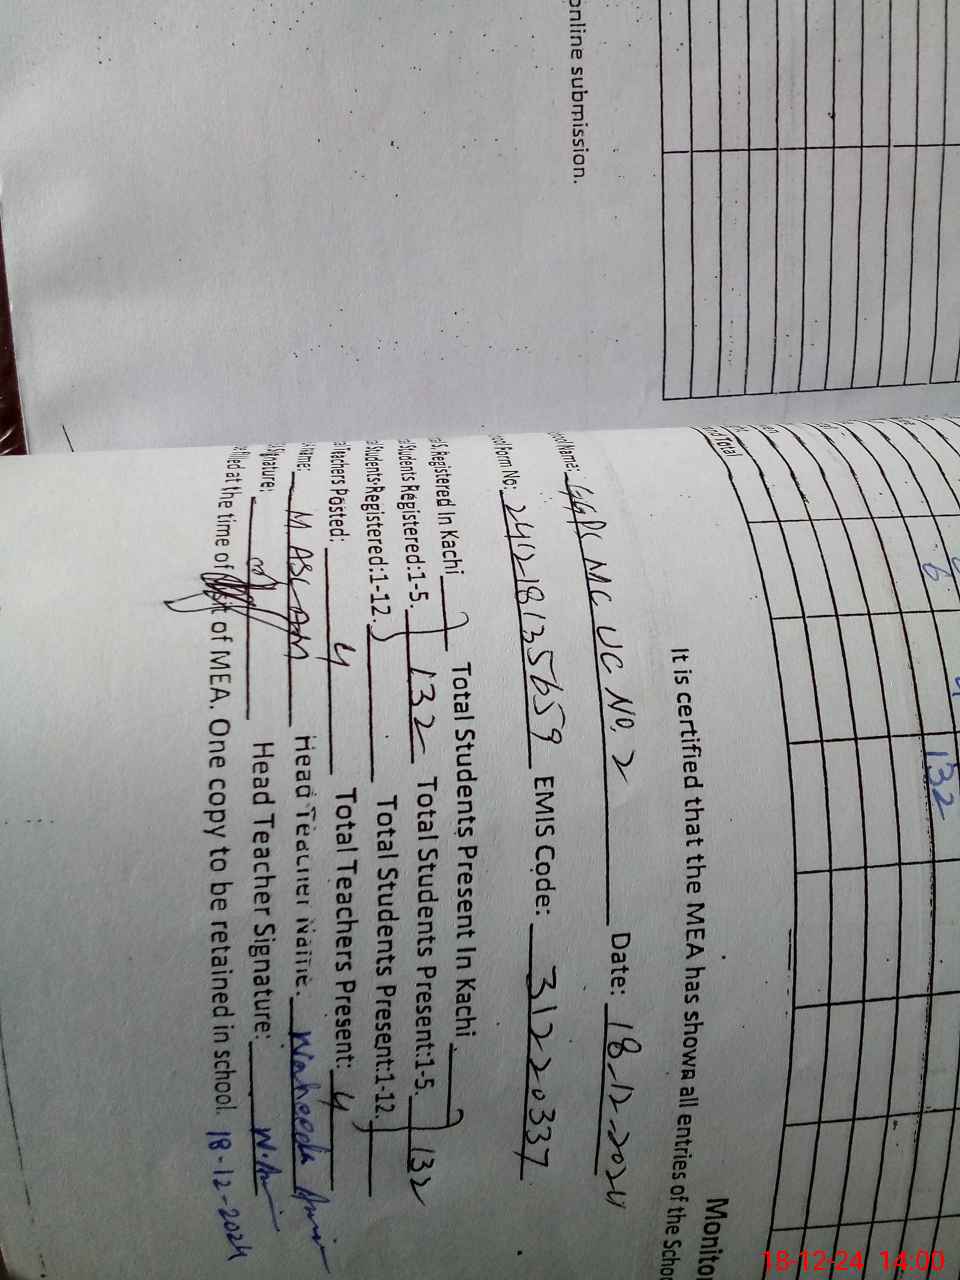 online submission.
Total
6
132
Monitor
It is certified that the MEA has shown all entries of the School
Name: GGPS MC UC No. 2 Date: 18-12-2024
Form No: 2412-18135659 EMIS Code: 31220337
S. Registered In Kachi Total Students Present In Kachi
Students Registered:1-5. 132 Total Students Present:1-5. 132
Students Registered:1-12. Total Students Present:1-12.
Teachers Posted: 4 Total Teachers Present: 4
Name: M ASLAM Head Teacher Name: Waheeda
Signature: Head Teacher Signature:
filled at the time of visit of MEA. One copy to be retained in school. 18-12-2024
18-12-24 14:00